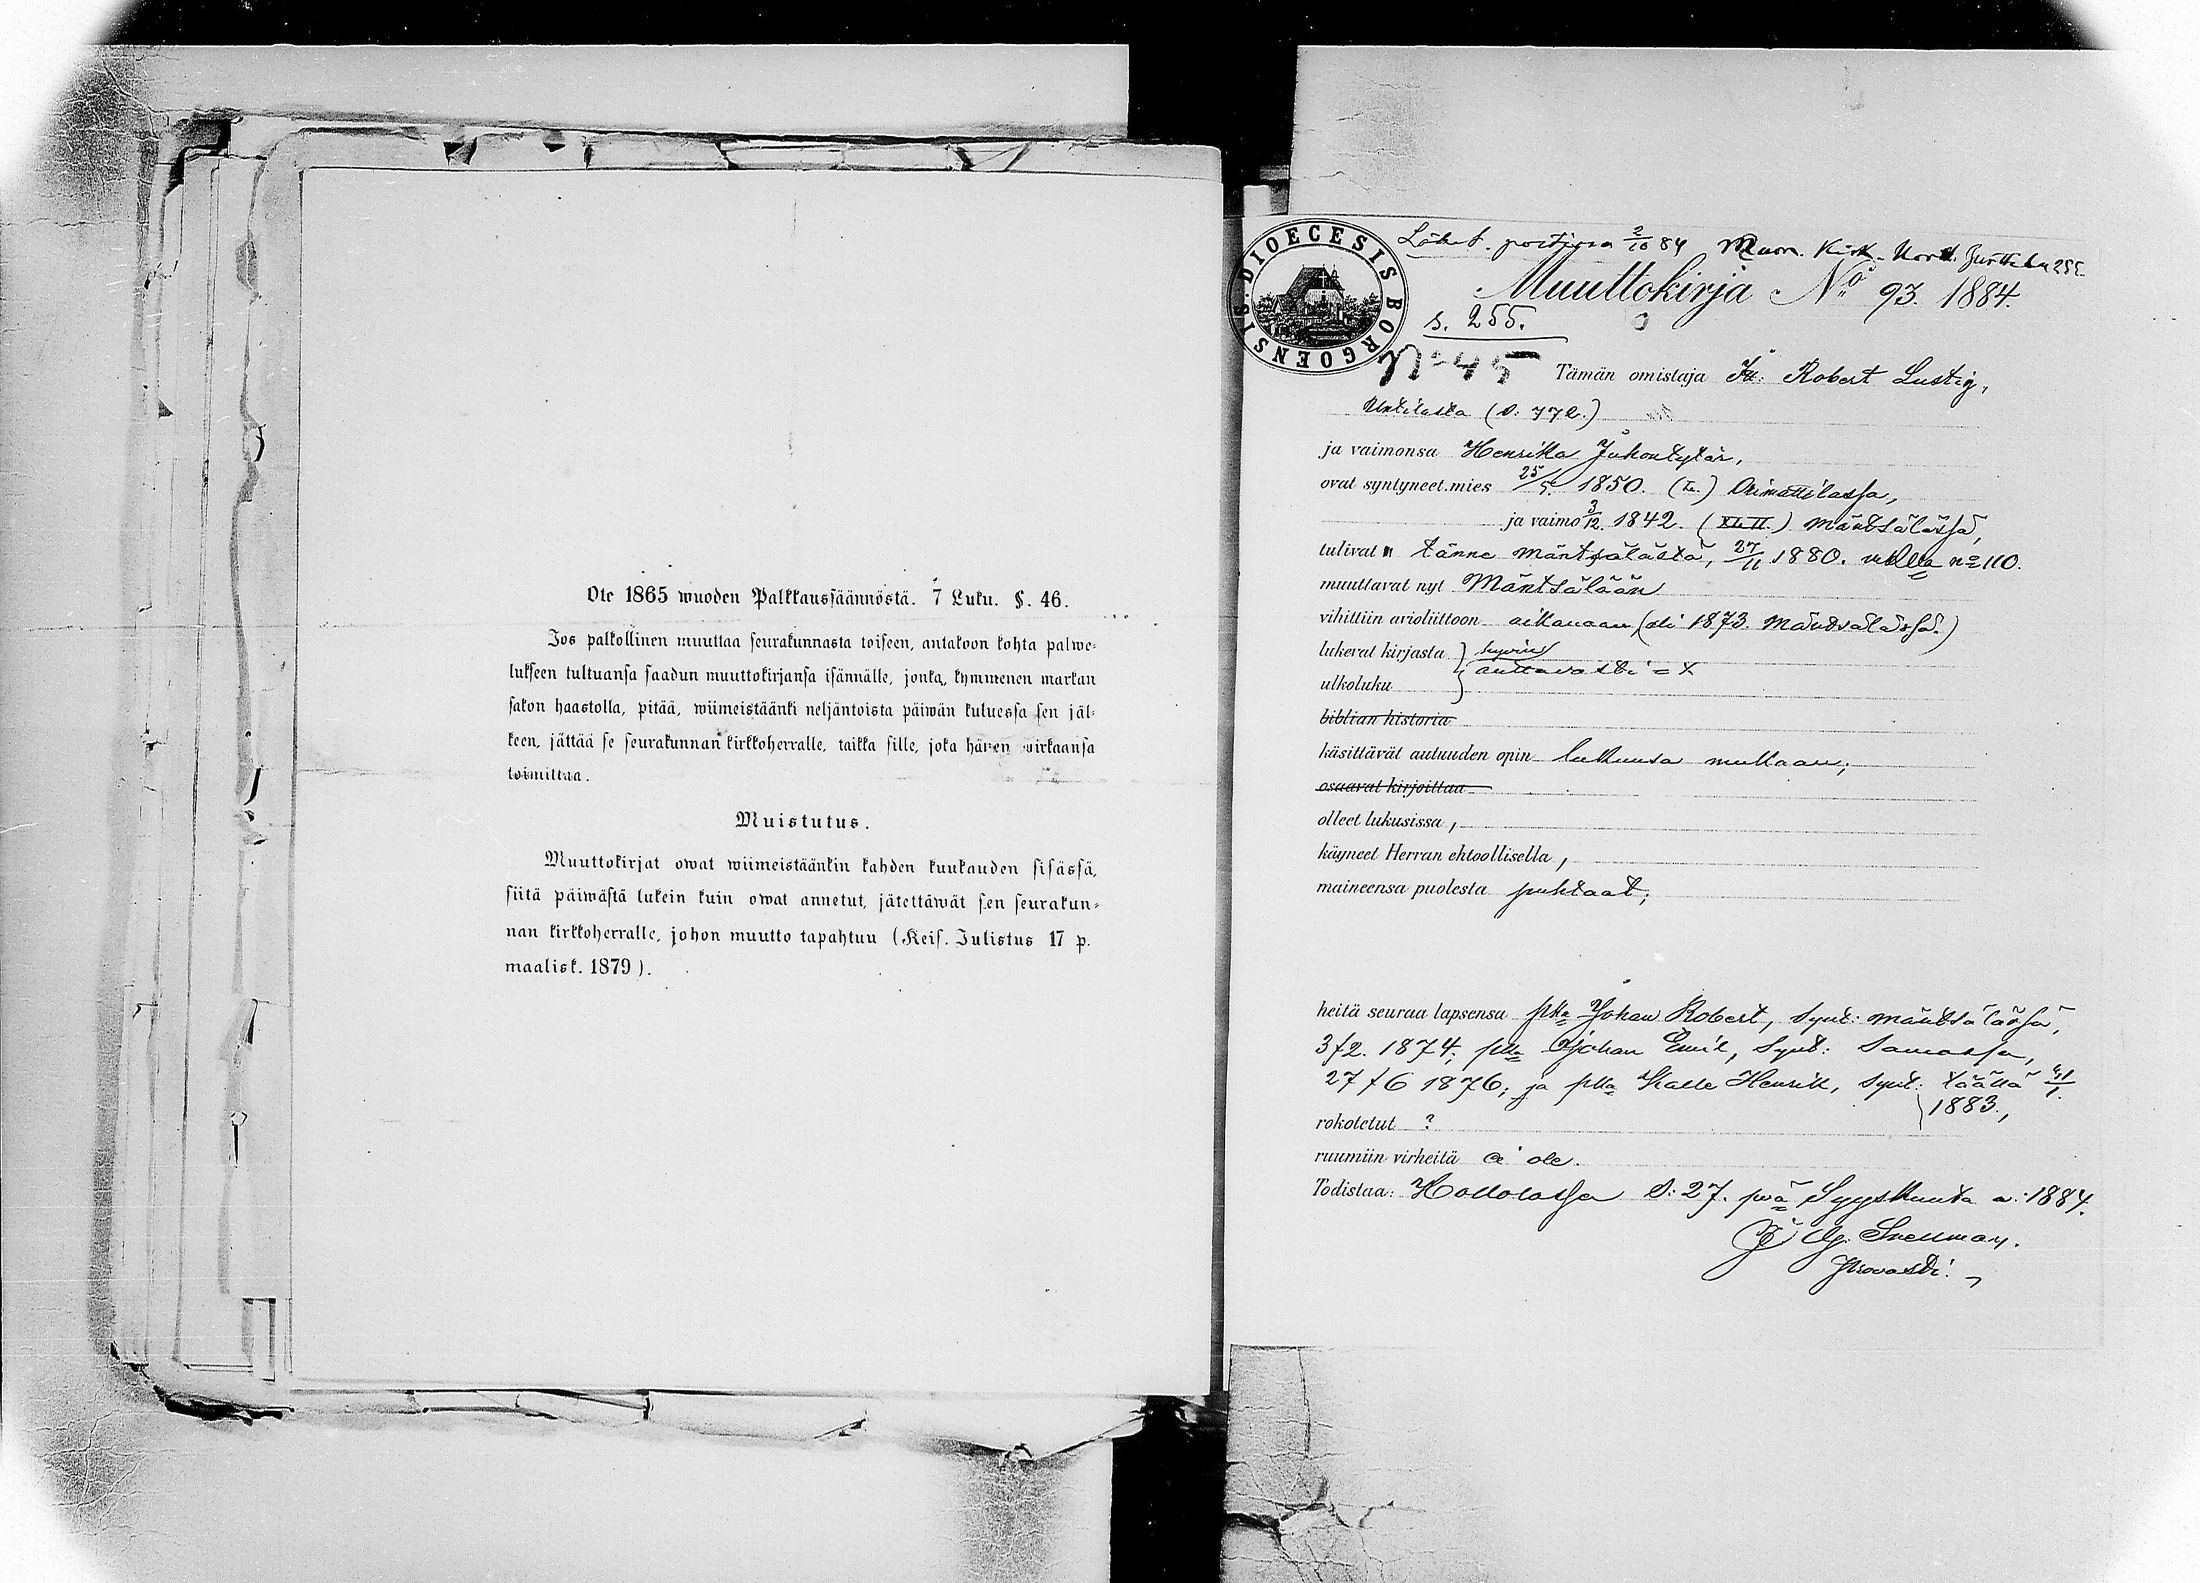 Ote 1865 wuoden Palkkaussäännöstä. 7 Luku. §. 46.
Jos palkollinen muuttaa seurakunnasta toiseen, antakoon kohta palwe-
lukseen tultuansa saadun muuttokirjansa isännälle, jonka, kymmenen markan
sakon haastolla, pitää, wiimeistäänki neljäntoista päiwän kuluessa sen jäl-
keen, jättää se seurakunnan kirkkoherralle, taikka sille, joka hänen wirkaansa
toimittaa.
Muistutus.
Muuttokirjat owat wiimeistäänkin kahden kuukauden sisässä,
siitä päiwästä lukein kuin owat annetut, jätettäwät sen seurakun-
nan kirkkoherralle, johon muutto tapahtuu (Keis. Julistus 17 p.
maalisk. 1879).
SIS. DIOECESIS BORGOENSIS
Lähet. postissa 2/10 84
Muuttokirja No 93. 1884.
s. 255.
No 45
Tämän omistaja Robert Lustig,
(s. 772.)
ja vaimonsa Henrika Juhontytär,
ovat syntyneet mies 25/5 1850. Orimattilassa,
ja vaimo 3/12 1842. (XLII.) Mäntsälässä,
tulivat tänne Mäntsälästä, 27/11 1880. no 110.
muuttavat nyt Mäntsälään
vihittiin avioliittoon aikanaan, (oli 1873. Mäntsälässä.)
lukevat kirjasta hyvin
auttavasti = x
ulkoluku
biblian historia
käsittävät autuuden opin lukunsa mukaan;
osaavat kirjoittaa
olleet lukusissa,
käyneet Herran ehtoollisella,
maineensa puolesta puhtaat;
heitä seuraa lapsensa pka Johan Robert, synt: Mäntsälässä,
3/2. 1874; pka Johan Emil, synt: samassa,
27/6 1876; ja pka Kalle Henrik, synt: täällä
1883.,
rokotetut ?
ruumiin virheitä ei ole.
Todistaa: Hollolassa s: 27. pnä Syyskuuta a: 1884.
G. Snellman.
Provasti.